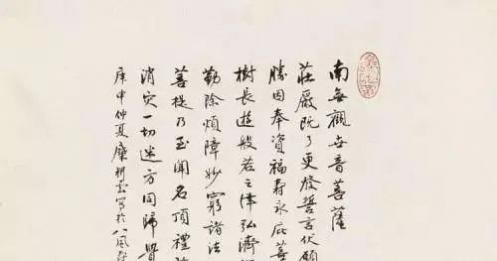 南無觀世音菩薩
莊嚴既了更發誓言伏願
勝因奉資福壽永庇善
樹長遊般若之津弘濟
勤除煩障妙窮諸法
菩提乃至聞名頂禮
消灾一切迷方同歸覺
庚申仲夏 寫於八風